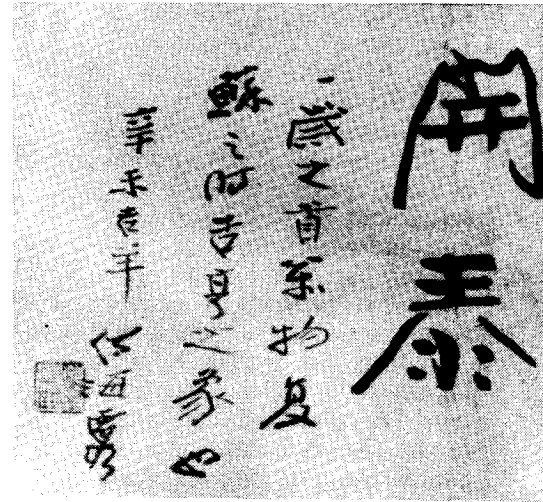 開泰
一歲之首萬物复
蘇之時吉亨之象也
辛未吉羊